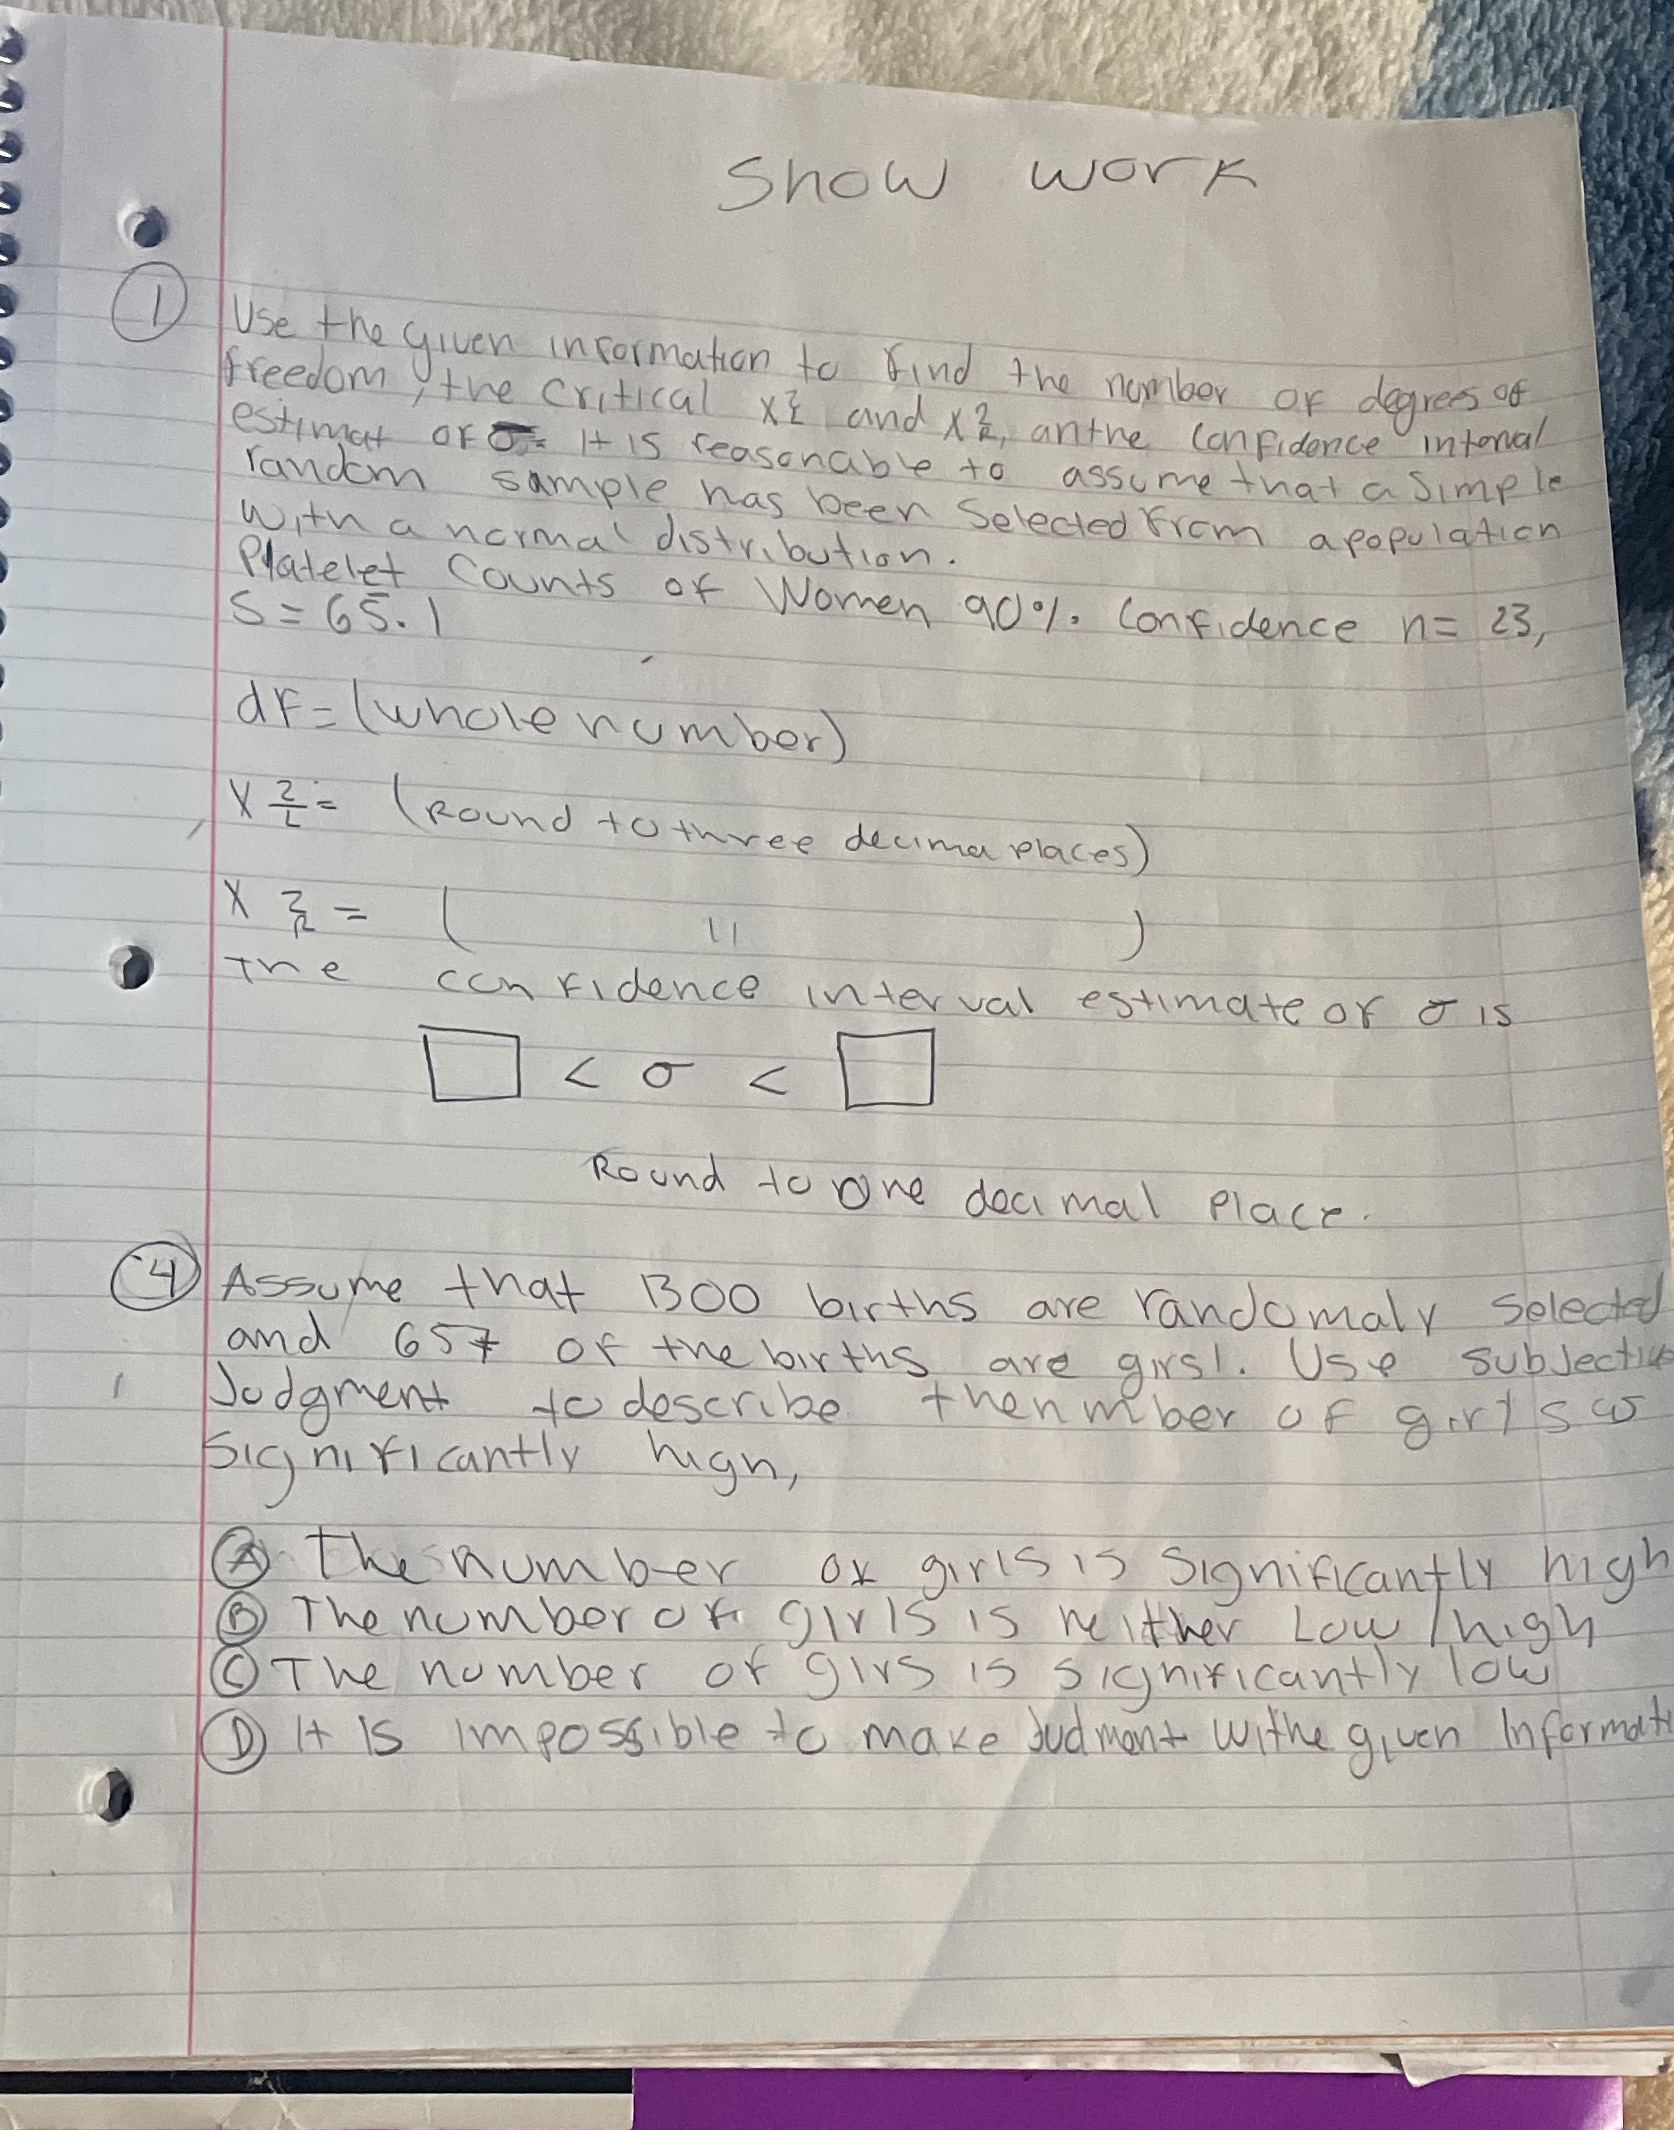 Show work
① Use the given information to find the number of degrees of
freedom, the critical X²L and X²R, an the confidence interval
estimat of σ. It is reasonable to assume that a simple
random sample has been selected from a population
with a normal distribution.
Platelet Counts of Women 90% Confidence n= 23,
S = 65.1
df = (whole number)
X²L = (Round to three decima places)
X²R = ( " )
The confidence interval estimate of σ is
□ < σ < □
Round to one decimal place.
④ Assume that 1300 births are randomaly selected
and 657 of the births are girsl. Use subjective
Judgment to describe thenmber of girls as
significantly high,
Ⓐ The number of girls is significantly high
Ⓑ The number of girls is neither Low / high
Ⓒ The number of girs is significantly low
Ⓓ It is impossible to make Judment withe given Informati